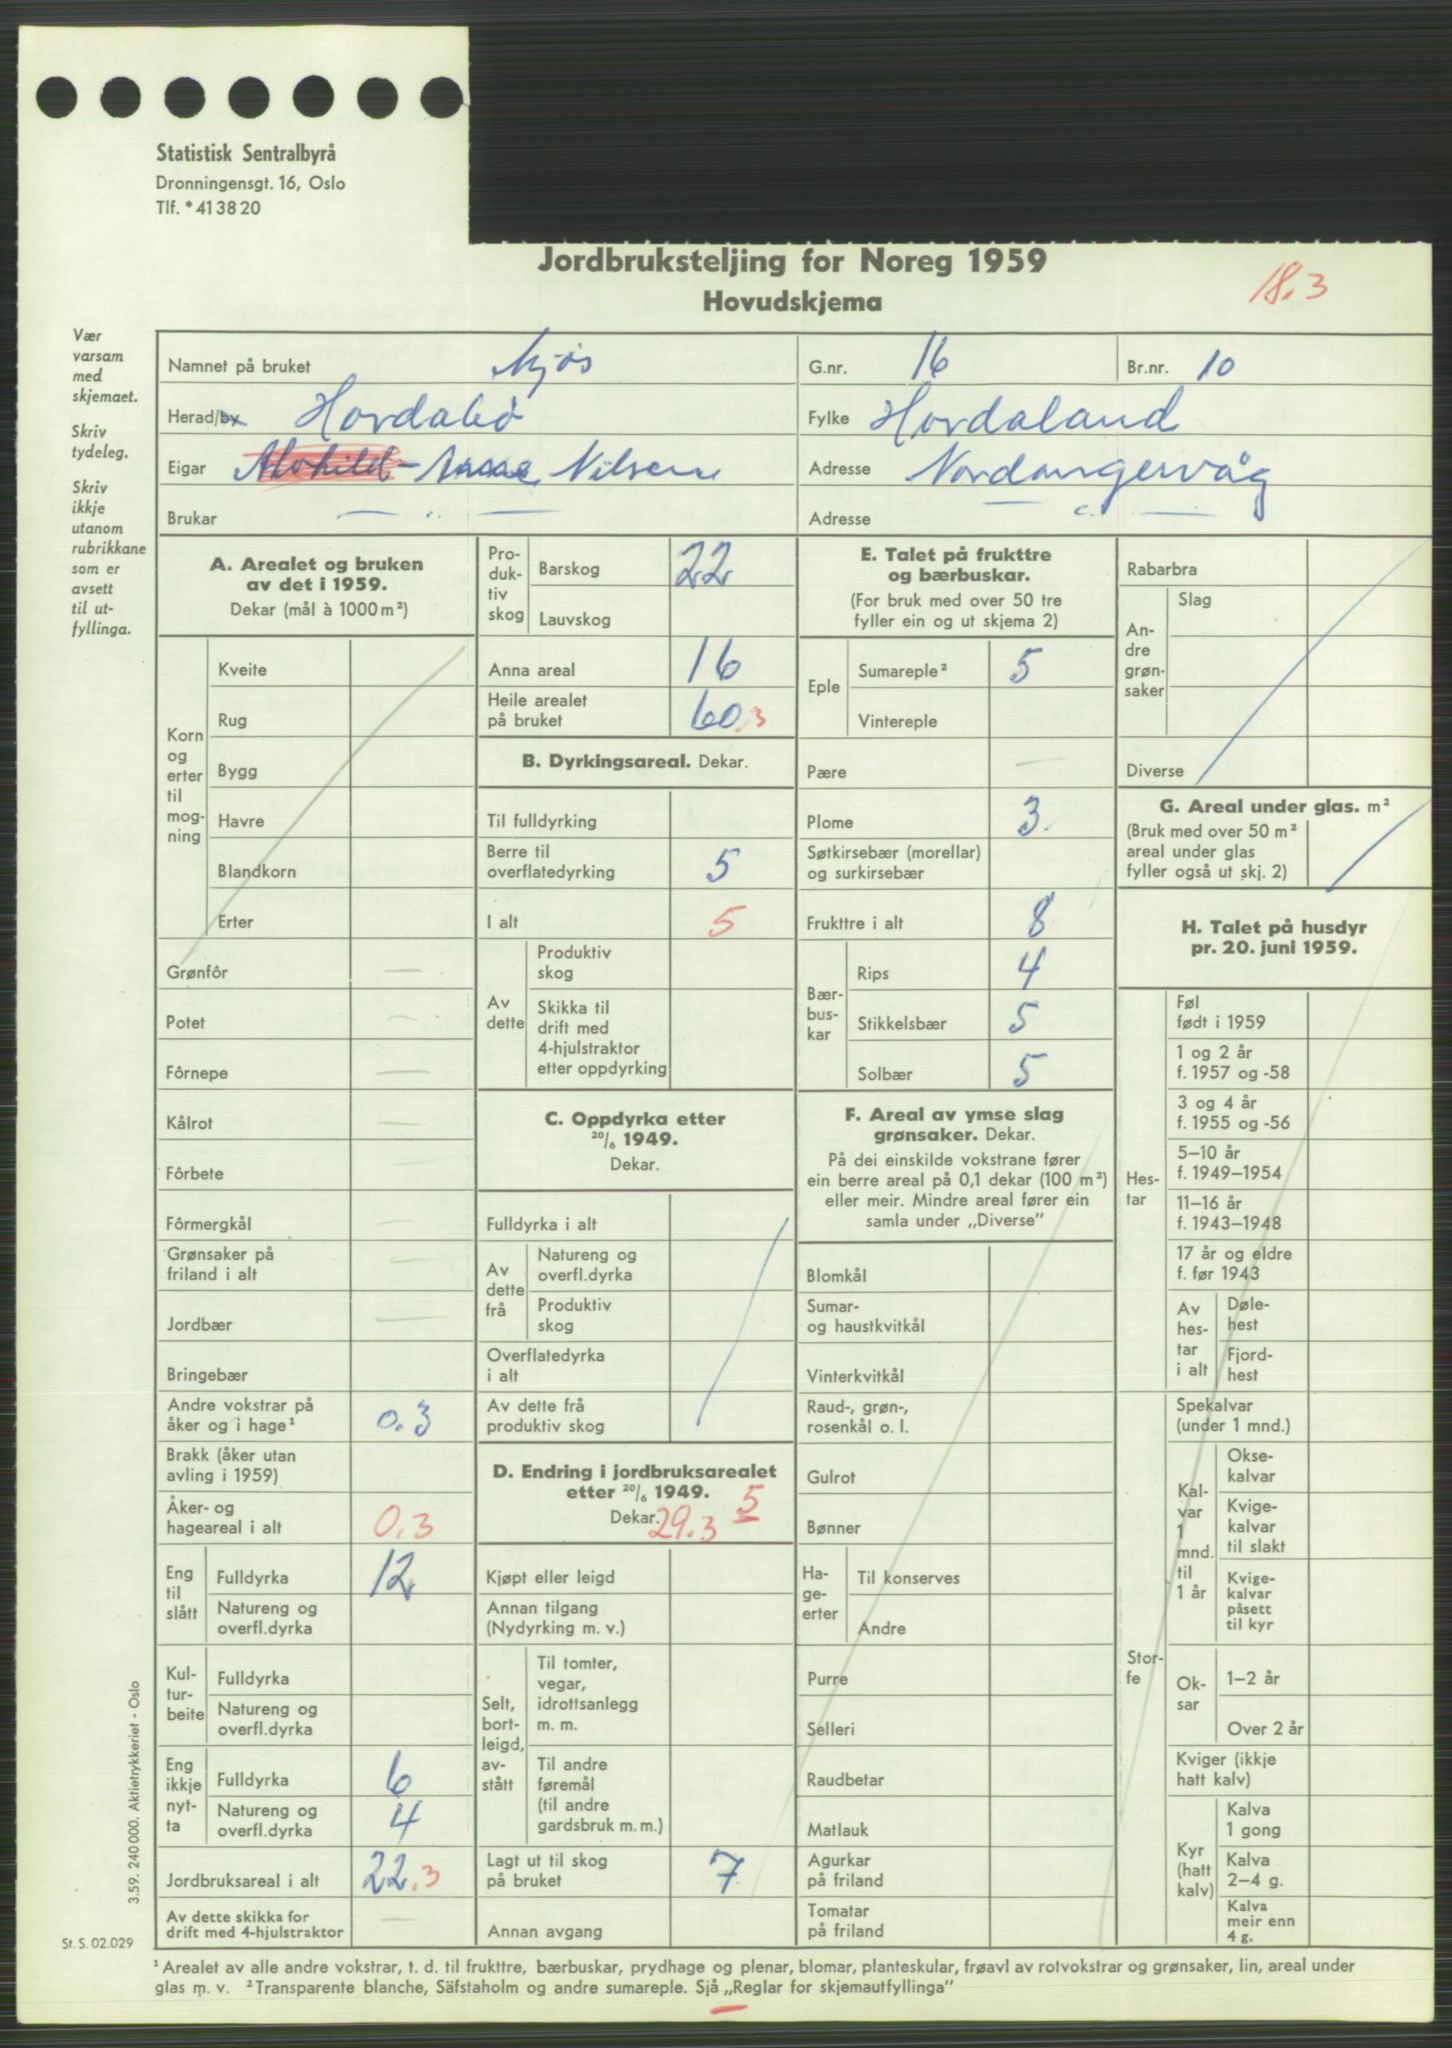 Statistisk Sentralbyrå
Dronningensgt. 16, Oslo
Tlf. * 41 38 20
Jordbruksteljing for Noreg 1959
Hovudskjema
18.3
Vær
varsam
med
skjemaet.
Skriv
tydeleg.
Skriv
ikkje
utanom
rubrikkane
som er
avsett
til ut-
fyllinga.
Namnet på bruket Mjøs
G.nr. 16
Br.nr. 10
Herad/by Hordabø
Fylke Hordaland
Eigar Nilsen
Adresse Nordangervåg
Brukar — „ —
Adresse — „ —
A. Arealet og bruken
av det i 1959.
Dekar (mål à 1000 m²)
Korn
og
erter
til
mog-
ning
Kveite
Rug
Bygg
Havre
Blandkorn
Erter
Grønfôr —
Potet —
Fôrnepe —
Kålrot —
Fôrbete —
Fôrmergkål —
Grønsaker på
friland i alt —
Jordbær —
Bringebær
Andre vokstrar på
åker og i hage¹ 0.3
Brakk (åker utan
avling i 1959)
Åker- og
hageareal i alt 0.3
Eng
til
slått
Fulldyrka 12
Natureng og
overfl.dyrka
Kul-
tur-
beite
Fulldyrka
Natureng og
overfl.dyrka
Eng
ikkje
nyt-
ta
Fulldyrka 6
Natureng og
overfl.dyrka 4
Jordbruksareal i alt 22.3
Av dette skikka for
drift med 4-hjulstraktor —
Pro-
duk-
tiv
skog
Barskog 22
Lauvskog
Anna areal 16
Heile arealet
på bruket 60.3
B. Dyrkingsareal. Dekar.
Til fulldyrking
Berre til
overflatedyrking 5
I alt 5
Av
dette
Produktiv
skog
Skikka til
drift med
4-hjulstraktor
etter oppdyrking
C. Oppdyrka etter
20/6 1949.
Dekar.
Fulldyrka i alt
Av
dette
frå
Natureng og
overfl.dyrka
Produktiv
skog
Overflatedyrka
i alt
Av dette frå
produktiv skog
D. Endring i jordbruksarealet
etter 20/6 1949. 5
Dekar. 29.3
Kjøpt eller leigd
Annan tilgang
(Nydyrking m. v.)
Selt,
bort-
leigd,
av-
stått
Til tomter,
vegar,
idrottsanlegg
m. m.
Til andre
føremål
(til andre
gardsbruk m. m.)
Lagt ut til skog
på bruket 7
Annan avgang
E. Talet på frukttre
og bærbuskar.
(For bruk med over 50 tre
fyller ein og ut skjema 2)
Eple
Sumareple² 5
Vintereple
Pære —
Plome 3
Søtkirsebær (morellar)
og surkirsebær
Frukttre i alt 8
Bær-
bus-
kar
Rips 4
Stikkelsbær 5
Solbær 5
F. Areal av ymse slag
grønsaker. Dekar.
På dei einskilde vokstrane fører
ein berre areal på 0,1 dekar (100 m²)
eller meir. Mindre areal fører ein
samla under „Diverse”
Blomkål
Sumar-
og haustkvitkål
Vinterkvitkål
Raud-, grøn-,
rosenkål o. l.
Gulrot
Bønner
Ha-
ge-
erter
Til konserves
Andre
Purre
Selleri
Raudbetar
Matlauk
Agurkar
på friland
Tomatar
på friland
Rabarbra
An-
dre
grøn-
saker
Slag
Diverse
G. Areal under glas. m²
(Bruk med over 50 m²
areal under glas
fyller også ut skj. 2)
H. Talet på husdyr
pr. 20. juni 1959.
Hes-
tar
Føl
født i 1959
1 og 2 år
f. 1957 og -58
3 og 4 år
f. 1955 og -56
5–10 år
f. 1949–1954
11–16 år
f. 1943–1948
17 år og eldre
f. før 1943
Av
hes-
tar
i alt
Døle-
hest
Fjord-
hest
Stor-
fe
Spekalvar
(under 1 mnd.)
Kal-
var
1
mnd.
til
1 år
Okse-
kalvar
Kvige-
kalvar
til slakt
Kvige-
kalvar
påsett
til kyr
Ok-
sar
1–2 år
Over 2 år
Kviger (ikkje
hatt kalv)
Kyr
(hatt
kalv)
Kalva
1 gong
Kalva
2–4 g.
Kalva
meir enn
4 g.
3.59. 240 000. Aktietrykkeriet - Oslo
St. S. 02.029
¹ Arealet av alle andre vokstrar, t. d. til frukttre, bærbuskar, prydhage og plenar, blomar, planteskular, frøavl av rotvokstrar og grønsaker, lin, areal under
glas m. v. ² Transparente blanche, Säfstaholm og andre sumareple. Sjå „Reglar for skjemautfyllinga”